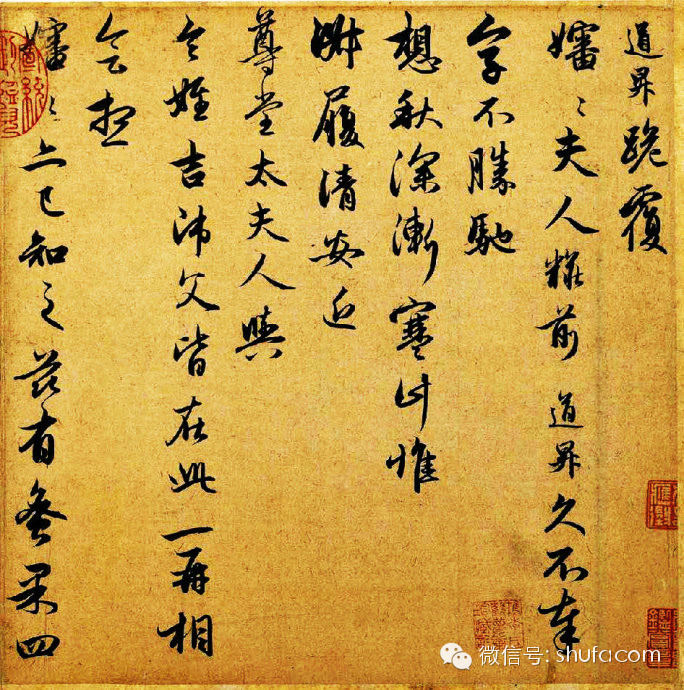 道昇跪覆
嬸〻夫人粧前 道昇久不奉
字不勝馳
想秋深漸寒計惟
淑履清安近
尊堂太夫人與
令姪吉師父皆在此一再相
會想
嬸〻亦已知之茲有蜜果四
微信号: shufacom